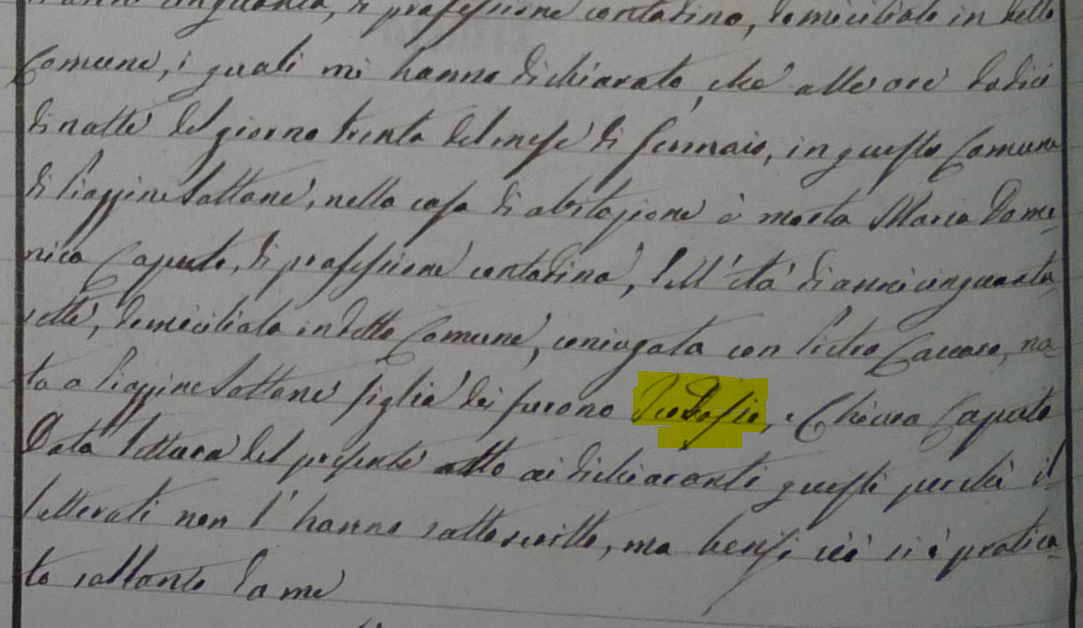 anni cinquanta, di professione contadino, domiciliato in detto
Comune, i quali mi hanno dichiarato, che alle ore dodici
di notte del giorno trenta del mese di Gennaio, in questo Comune
di Piaggine Sottane, nella casa di abitazione è morta Maria Dome-
nica Caputo, di professione contadina, dell'età di anni cinquanta-
sette, domiciliata in detto Comune, coniugata con Pietro Coccaro, na-
ta a Piaggine Sottane figlia dei furono Teodosio, e Chiara Caputo
Data lettura del presente atto ai dichiaranti questi perchè il-
letterati non l'hanno sottoscritto, ma bensì ciò si è pratica-
to soltanto da me